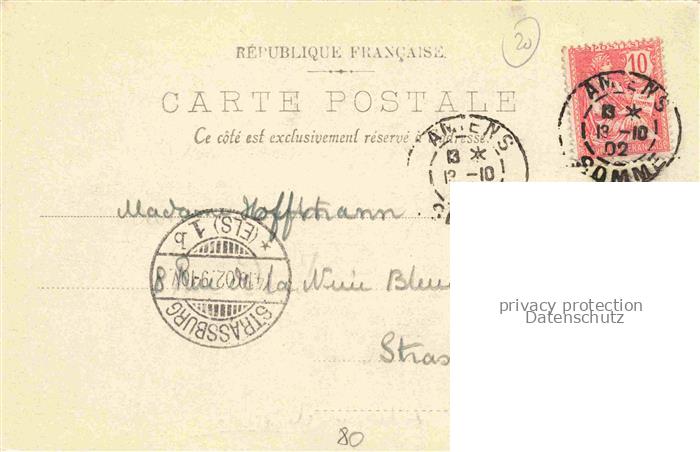 20
RÉPUBLIQUE FRANÇAISE.
CARTE POSTALE
Ce côté est exclusivement réservé à l'adresse.
10
POSTES
AMIENS
13 *
13 -10
02
SOMME
AMIENS
13 *
13 -10
Madame Hoffmann
* (ELS) 1 b
STRASSBURG
8 Rue de la Nuée Bleu
Stras
privacy protection
Datenschutz
80